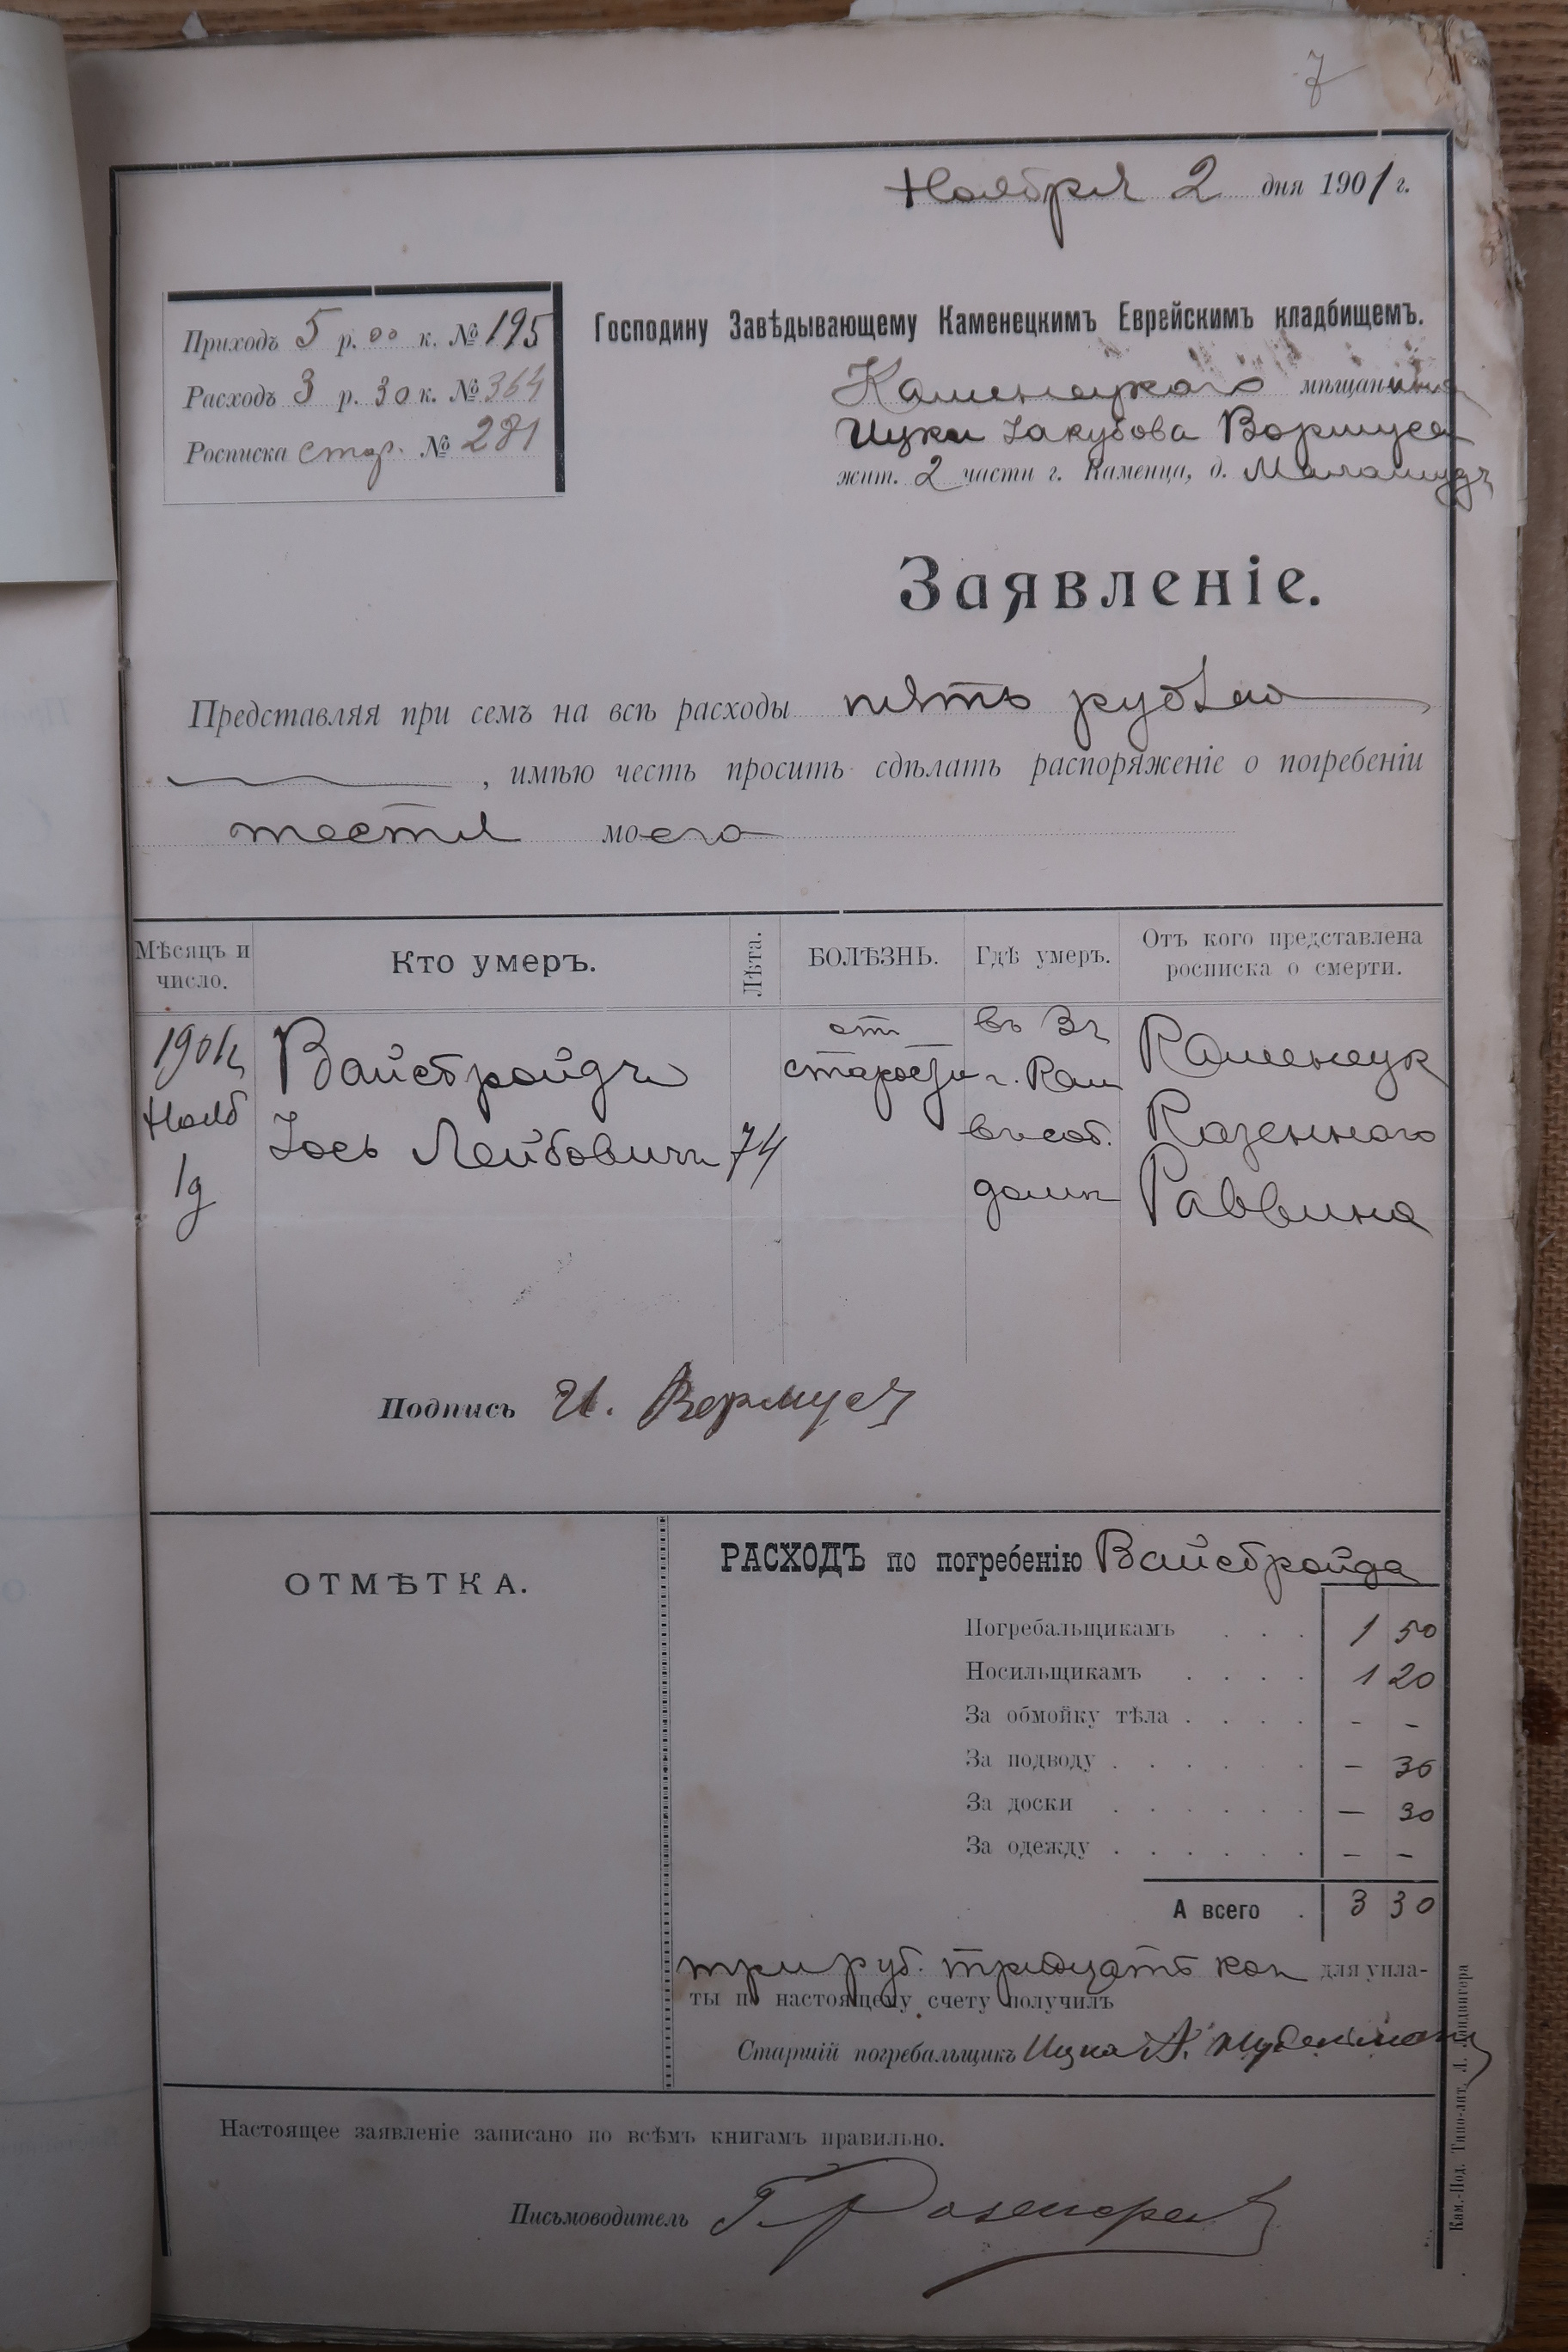 7
Ноября 2 дня 1901 г.
Приходъ 5 р. 00 к. № 195
Расходъ 3 р. 30 к. № 364
Росписка стар. № 281
Господину Завѣдывающему Каменецкимъ Еврейскимъ кладбищемъ.
Каменецкаго мѣщанина
Ицки Іакубова Вормуса
жит. 2 части г. Каменца, д.
Заявленіе.
Представляя при семъ на всѣ расходы пять рублей
, имѣю честь просить сдѣлать распоряженіе о погребеніи
тестя моего
Мѣсяцъ и число.
Кто умеръ.
Лѣта.
БОЛѢЗНЬ.
Гдѣ умеръ.
Отъ кого представлена
росписка о смерти.
1901г
Нояб
1д
Вайсбройдъ
Іось Лейбовичъ
74
отъ
старости
въ
г. Кам
въ соб.
домѣ
Каменецк
Казеннаго
Раввина
Подпись И. Вормусъ
ОТМѢТКА.
РАСХОДЪ по погребенію Вайсбройда
Погребальщикамъ . . . 1 50
Носильщикамъ . . . . 1 20
За обмойку тѣла . . . . - -
За подводу . . . . . . - 30
За доски . . . . . . — 30
За одежду . . . . . . - -
А всего . 3 30
три руб. тридцать коп для упла-
ты по настоящему счету получилъ
Старшій погребальщикъ Ицко
Настоящее заявленіе записано по всѣмъ книгамъ правильно.
Письмоводитель
Кам.-Под. Типо-лит. Л. Ландвигера